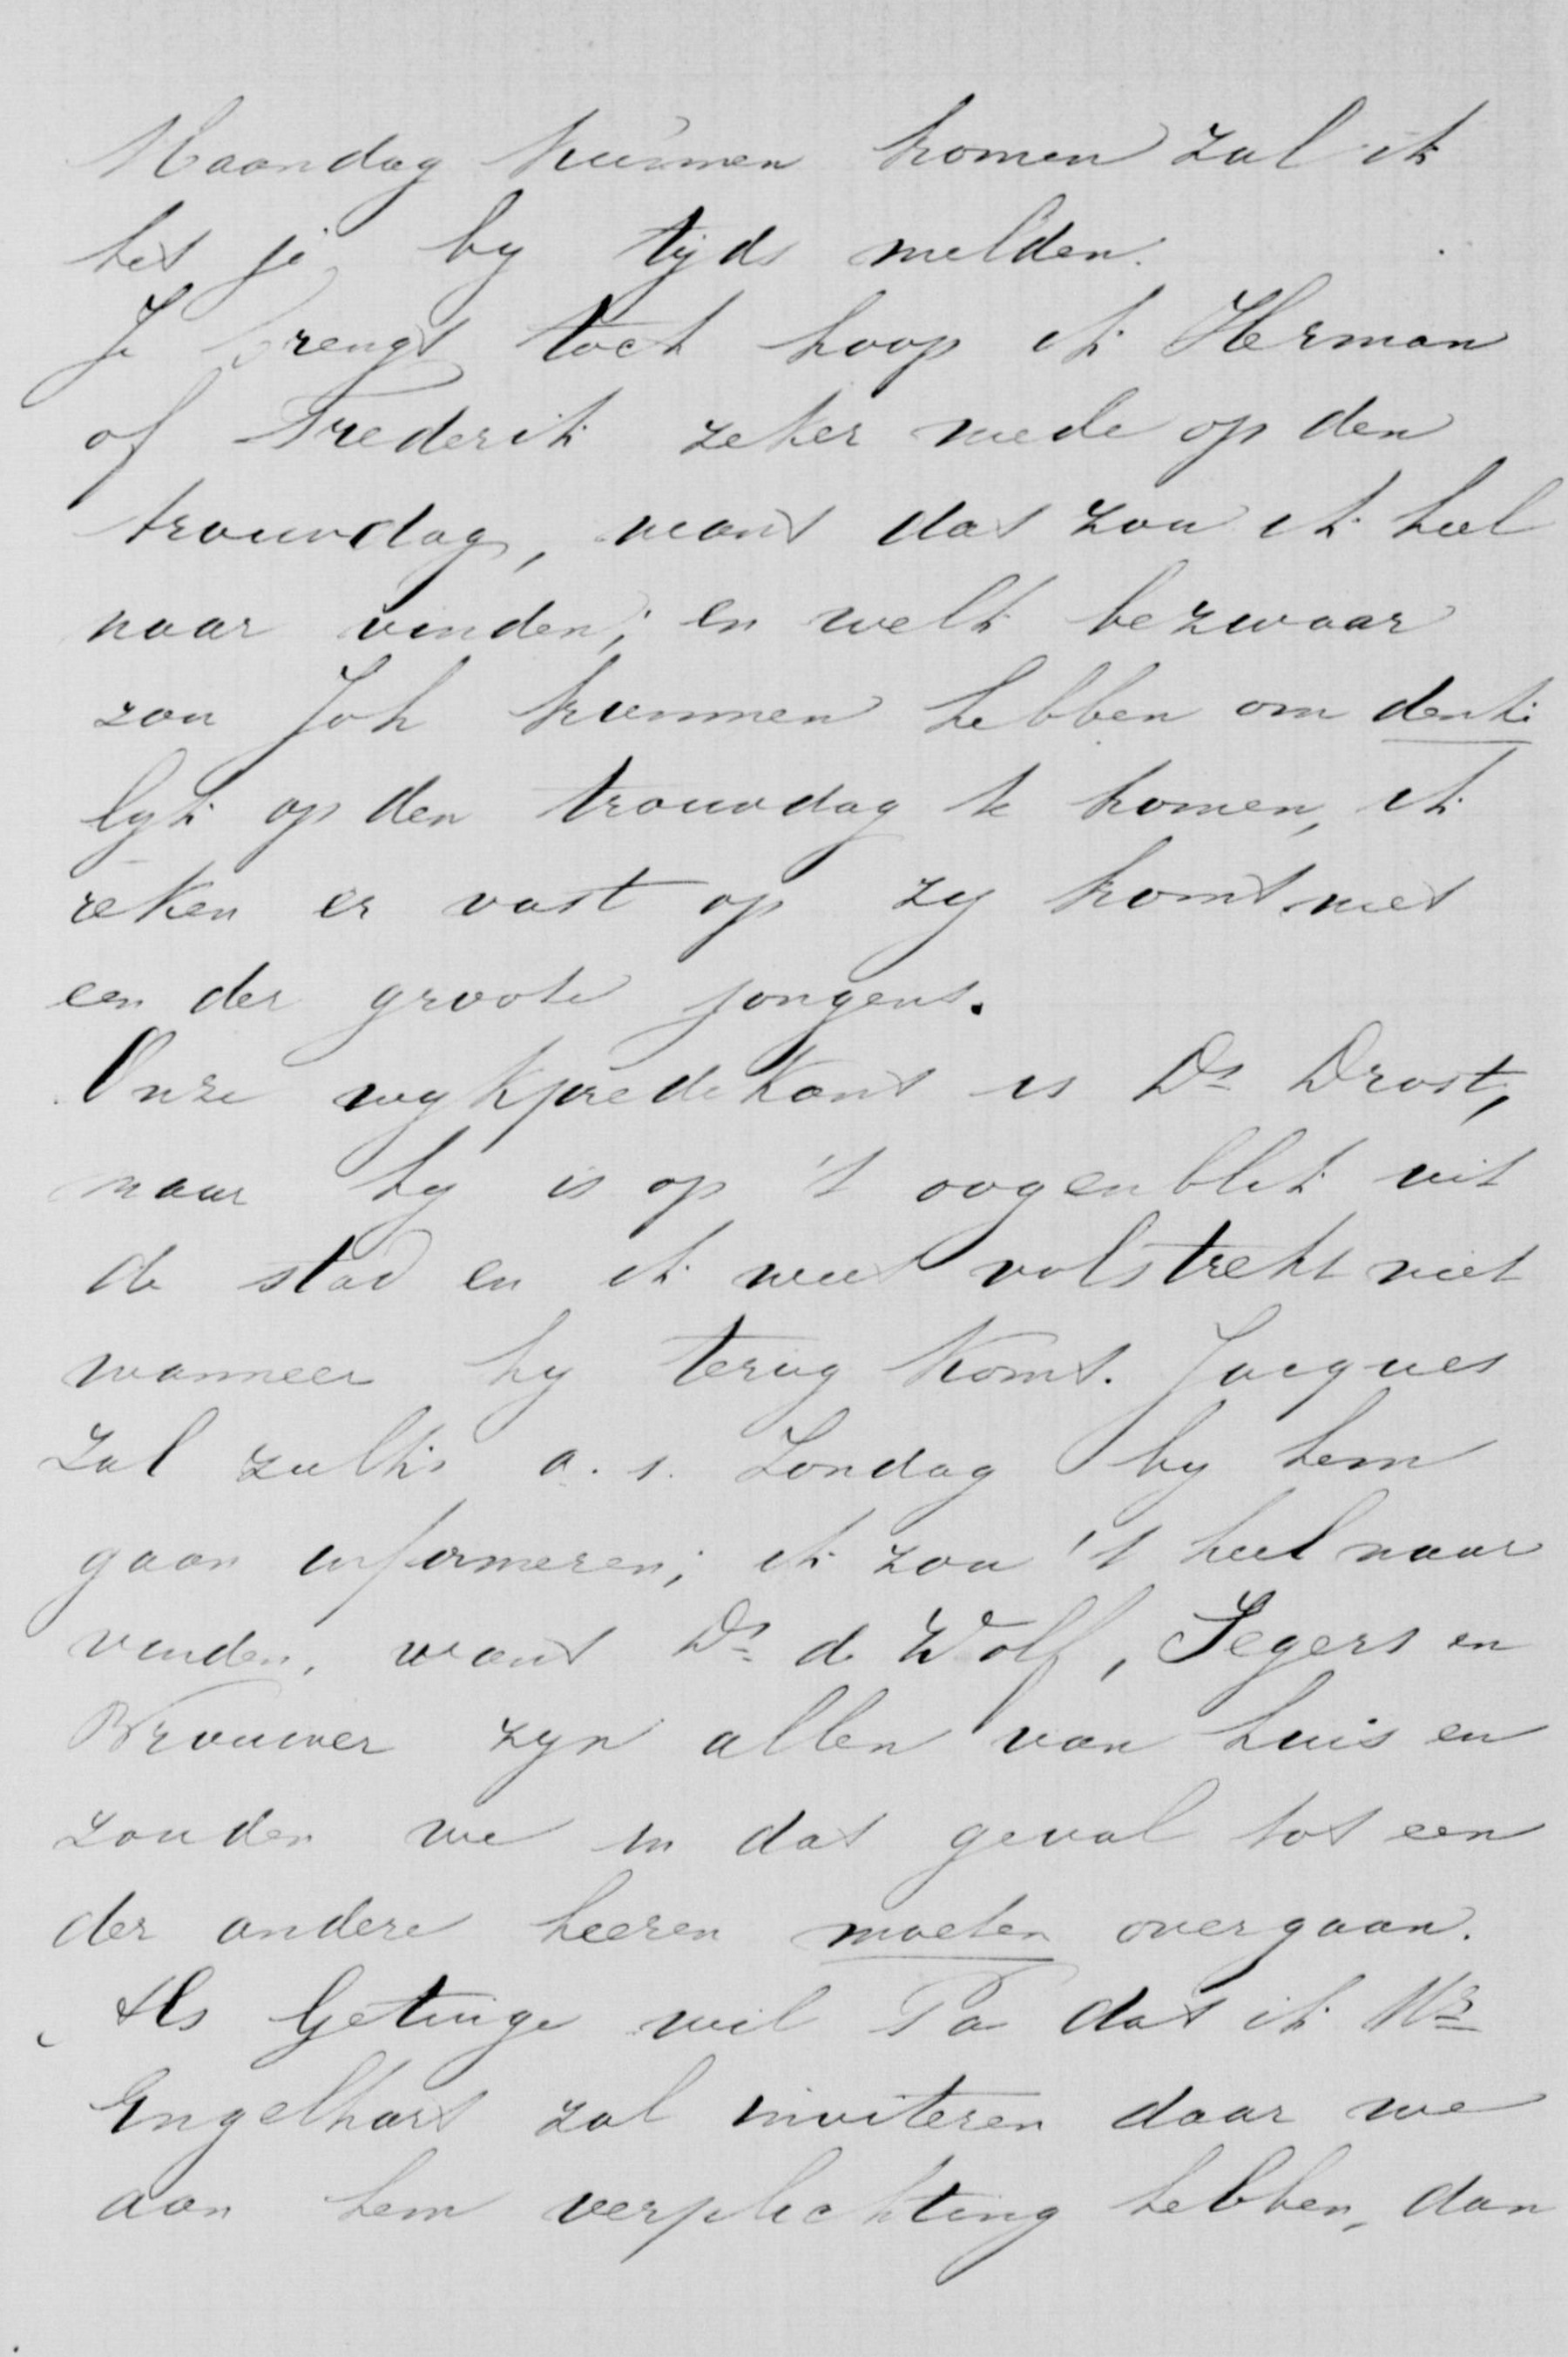 Maandag kunnen komen zal ik
het je by tyds melden.
Je brengt toch hoop ik Herman
of Frederik zeker mede op den
trouwdag, want dat zou ik heel
naar vinden; en welk bezwaar
zou Joh kunnen hebben om denk:
lyk op den trouwdag te komen, ik
reken er vast op zy komt met
een der groote jongens.
Onze wykpredikant is Ds Drost,
maar hy is op 't oogenblik uit
de stad en ik weet volstrekt niet
wanneer hy terug komt. Jacques
zal zulks a. s. Zondag by hem
gaan informeren; ik zou 't heel naar
vinden, want Ds de Wolf, Segers en
Brouwer zyn allen van huis en
zouden we in dat geval tot een
der andere heeren moeten overgaan.
Als Getuige wil Pa dat ik Mr
Engelhart zal inviteren daar we
aan hem verplichting hebben, dan